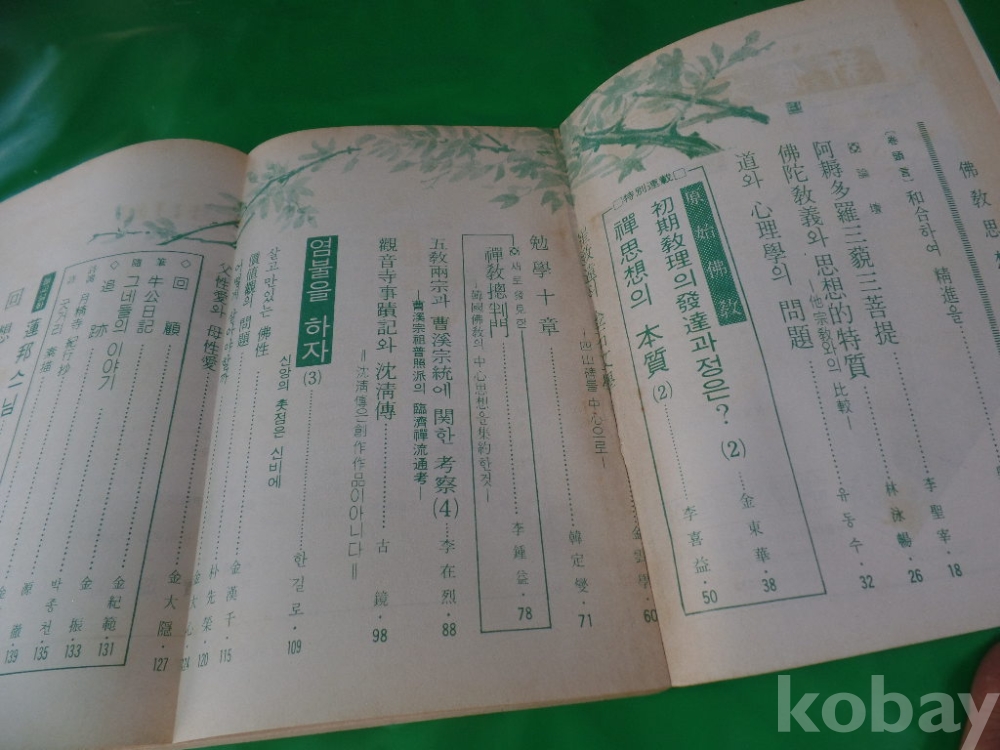 佛教思
和合하여 精進을
李聖宰·18
亞
論壇
阿耨多羅三藐三菩提
林泳暢·26
佛陀教義와 思想的特質
—他宗教와의 比較—
유동수·32
道와 心理學의 問題
金東華·38
□特別連載□
原始佛教
初期教理의 發達과정은? (2)
禪思想의 本質 (2)
李喜益·50
中心으로—
60
勉學十章
韓定燮·71
禪教摠判門
—韓國佛教의 中心思想을 集約한것—
李鍾益·78
五教兩宗과 曹溪宗統에 関한 考察 (4)
—曹溪宗祖普照派의 臨濟禪流通考—
李在烈·88
觀音寺事蹟記와 沈淸傳
=沈淸傳은 創作作品이 아니다=
古鏡·98
염불을 하자 (3)
신앙의 촛점은 신비에
한길로·109
살고 있는 佛性
金漢千·115
價値觀의 問題
朴先榮·120
父性愛와 母性愛
◇回顧
金大隠·127
隨筆
牛公日記
그네들의 이야기
金紀範·131
◇追跡
金振·133
紀行抄
박종천·135
蓮邦스님
回想
139
kobay